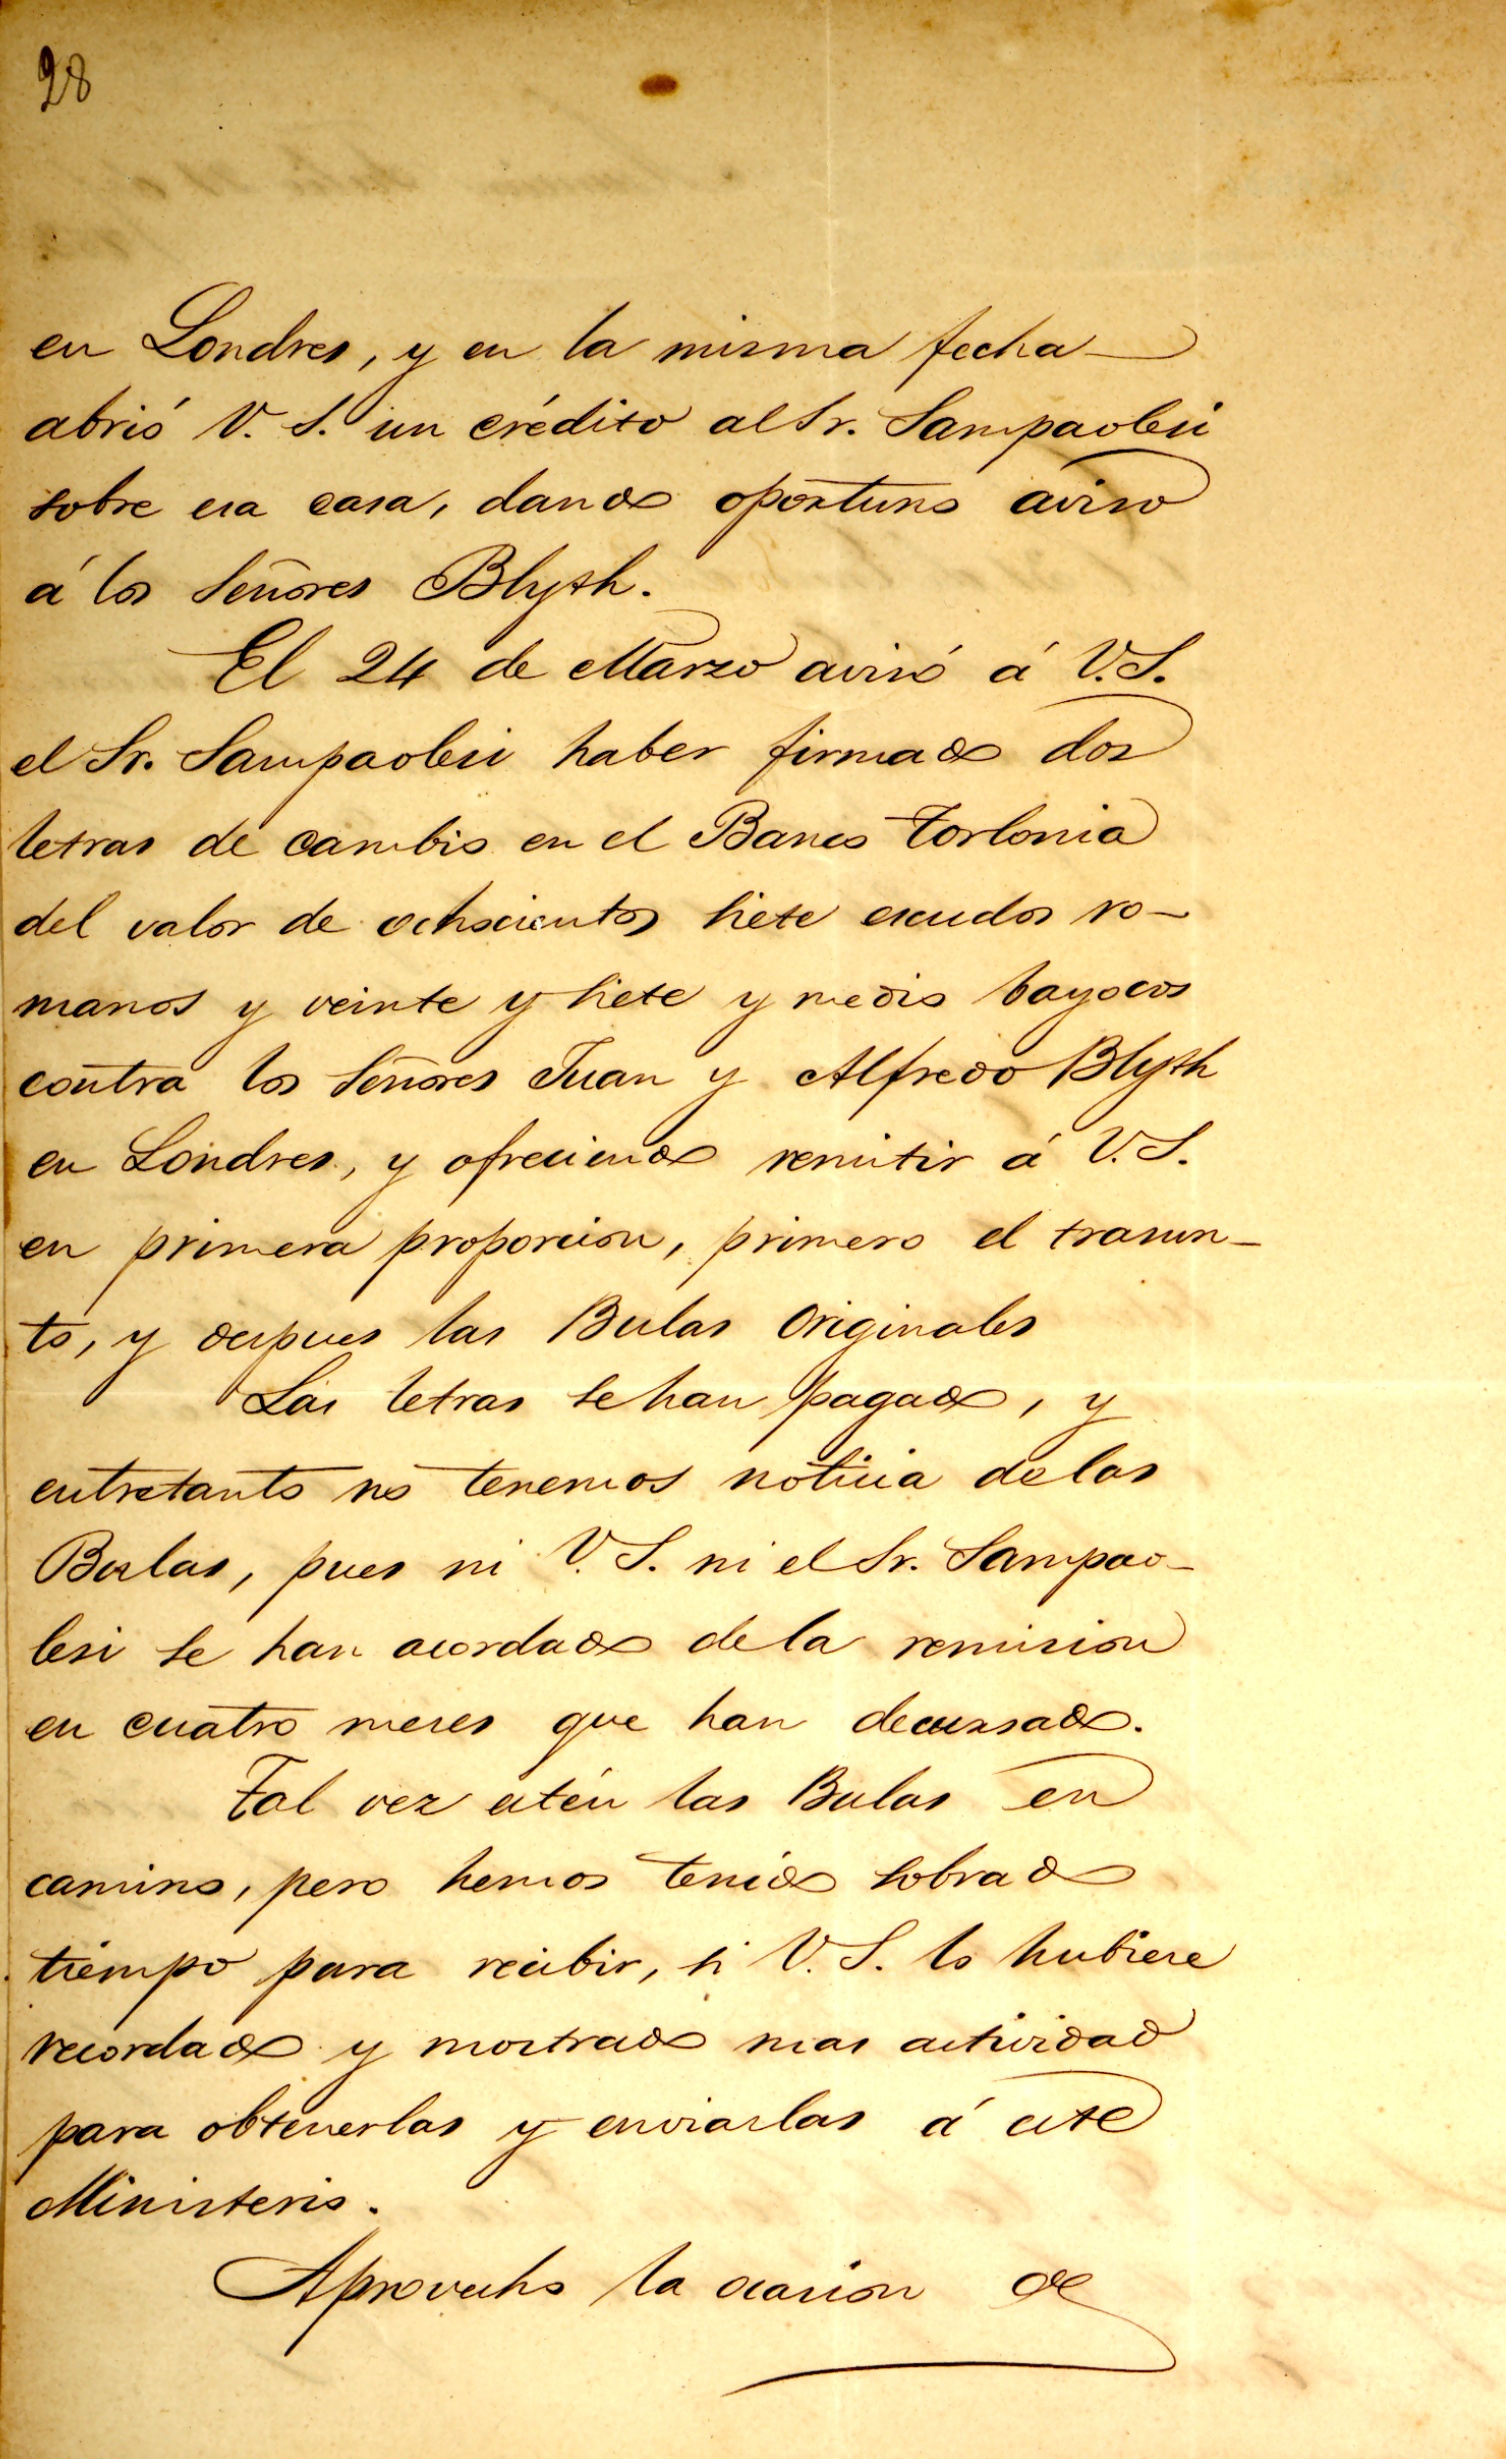 28
en Londres, y en la misma fecha
abrió V. S. un crédito al Sr. Sampaolesi
sobre esa casa, dando oportuno aviso
á los Señores Blyth.
El 24 de Marzo avisó á V. S.
el Sr. Sampaolesi haber firmado dos
letras de cambio en el Banco Torlonia
del valor de ochocientos siete escudos ro-
manos y veinte y siete y medio bayocos
contra los Señores Juan y Alfredo Blyth
en Londres, y ofreciendo remitir á V. S.
en primera proporcion, primero el trasun-
to, y despues las Bulas Originales
Las letras se han pagado, y
entretanto no tenemos noticia de las
Bulas, pues ni V. S. ni el Sr. Sampao-
lesi se han acordado de la remision
en cuatro meses que han decursado.
Tal vez estén las Bulas en
camino, pero hemos tenido sobrado
tiempo para recibir, si V. S. lo hubiese
recordado y mostrado mas actividad
para obtenerlas y enviarlas á este
Ministerio.
Aprovecho la ocasion de